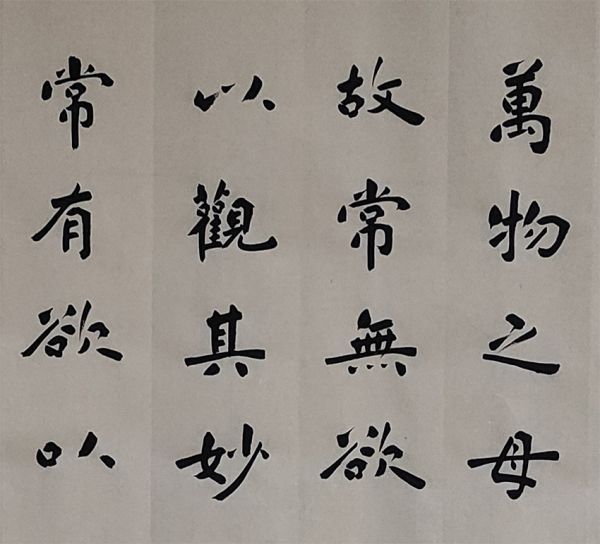 萬物之母
故常無欲
以觀其妙
常有欲以